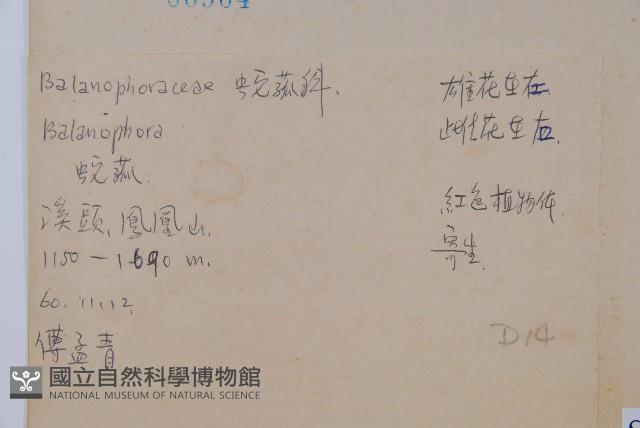 Balanophoraceae 蛇菰科.
Balanophora
蛇菰.
溪頭、鳳凰山.
1150 — 1690 m.
60. 11. 12.
傅孟青
雄花生在
雌花生在
紅色植物体.
寄生.
D14
國立自然科學博物館
NATIONAL MUSEUM OF NATURAL SCIENCE